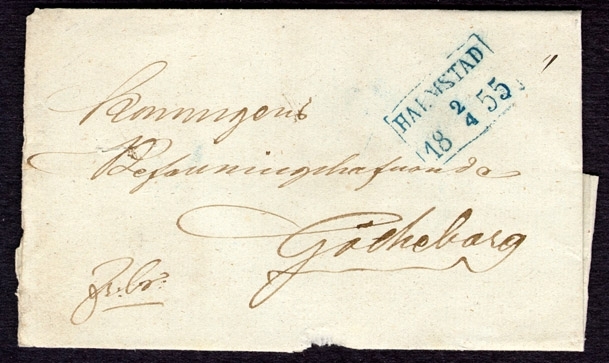 HALMSTAD
2
18 55
4
Konungens
Befallningshafvande
Götheborg
Fr: br: